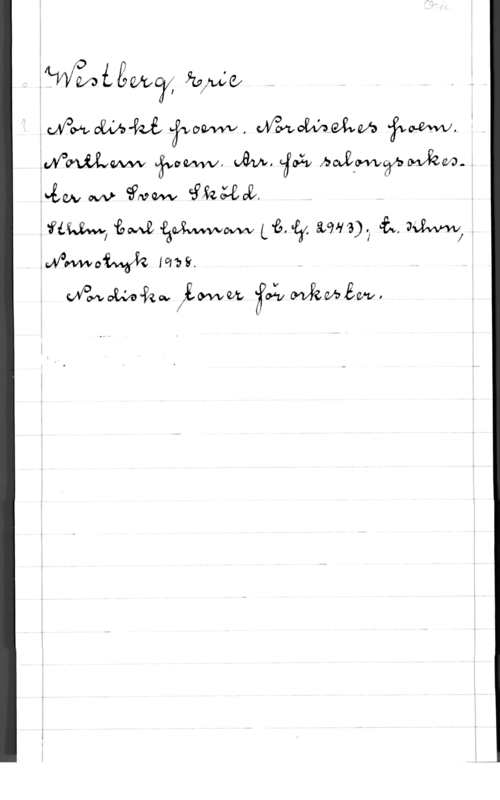 Westberg, Eric
Nordiskt poem. Nordisches poem.
Northern poem. Arr. för salongsorkes-
ter av Sven Sköld.
Sthlm, Carl Gehrman (C. G. 2943); tr. Sthlm,
Nornotryk 1938.
Nordiska toner för orkester.